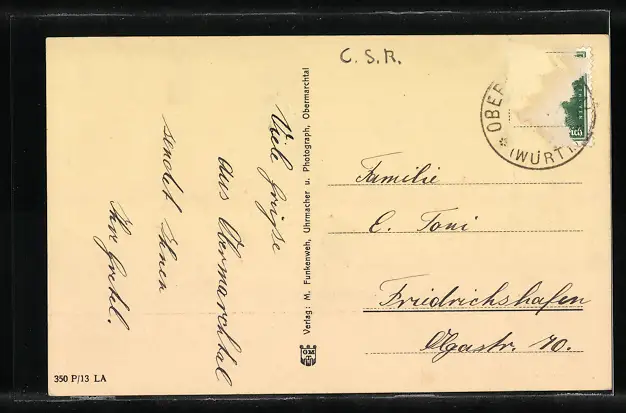 C. S. R.
OBER
(WÜRTT
Viele Grüße
aus Obermarchtal
sendet Ihnen
Ihre
Verlag: M. Funkenweh, Uhrmacher u. Photograph, Obermarchtal
Familie
E. Toni
Friedrichshafen
Olgastr. 70.
350 P/13 LA